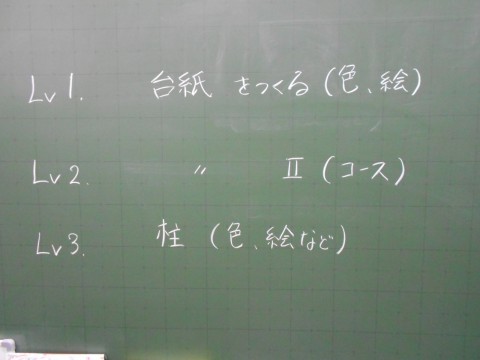 Lv1. 台紙をつくる(色、絵)
Lv2. 〃 Ⅱ(コース)
Lv3. 柱(色、絵など)